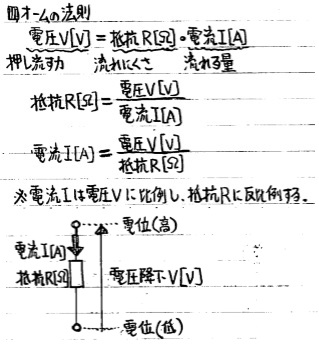 四オームの法則
電圧V[V]=抵抗R[Ω]・電流I[A]
押し流す力 流れにくさ 流れる量
抵抗R[Ω]=電圧V[V]/電流I[A]
電流I[A]=電圧V[V]/抵抗R[Ω]
※電流Iは電圧Vに比例し、抵抗Rに反比例する。
電位(高)
電流I[A]
抵抗R[Ω]
電圧降下V[V]
電位(低)